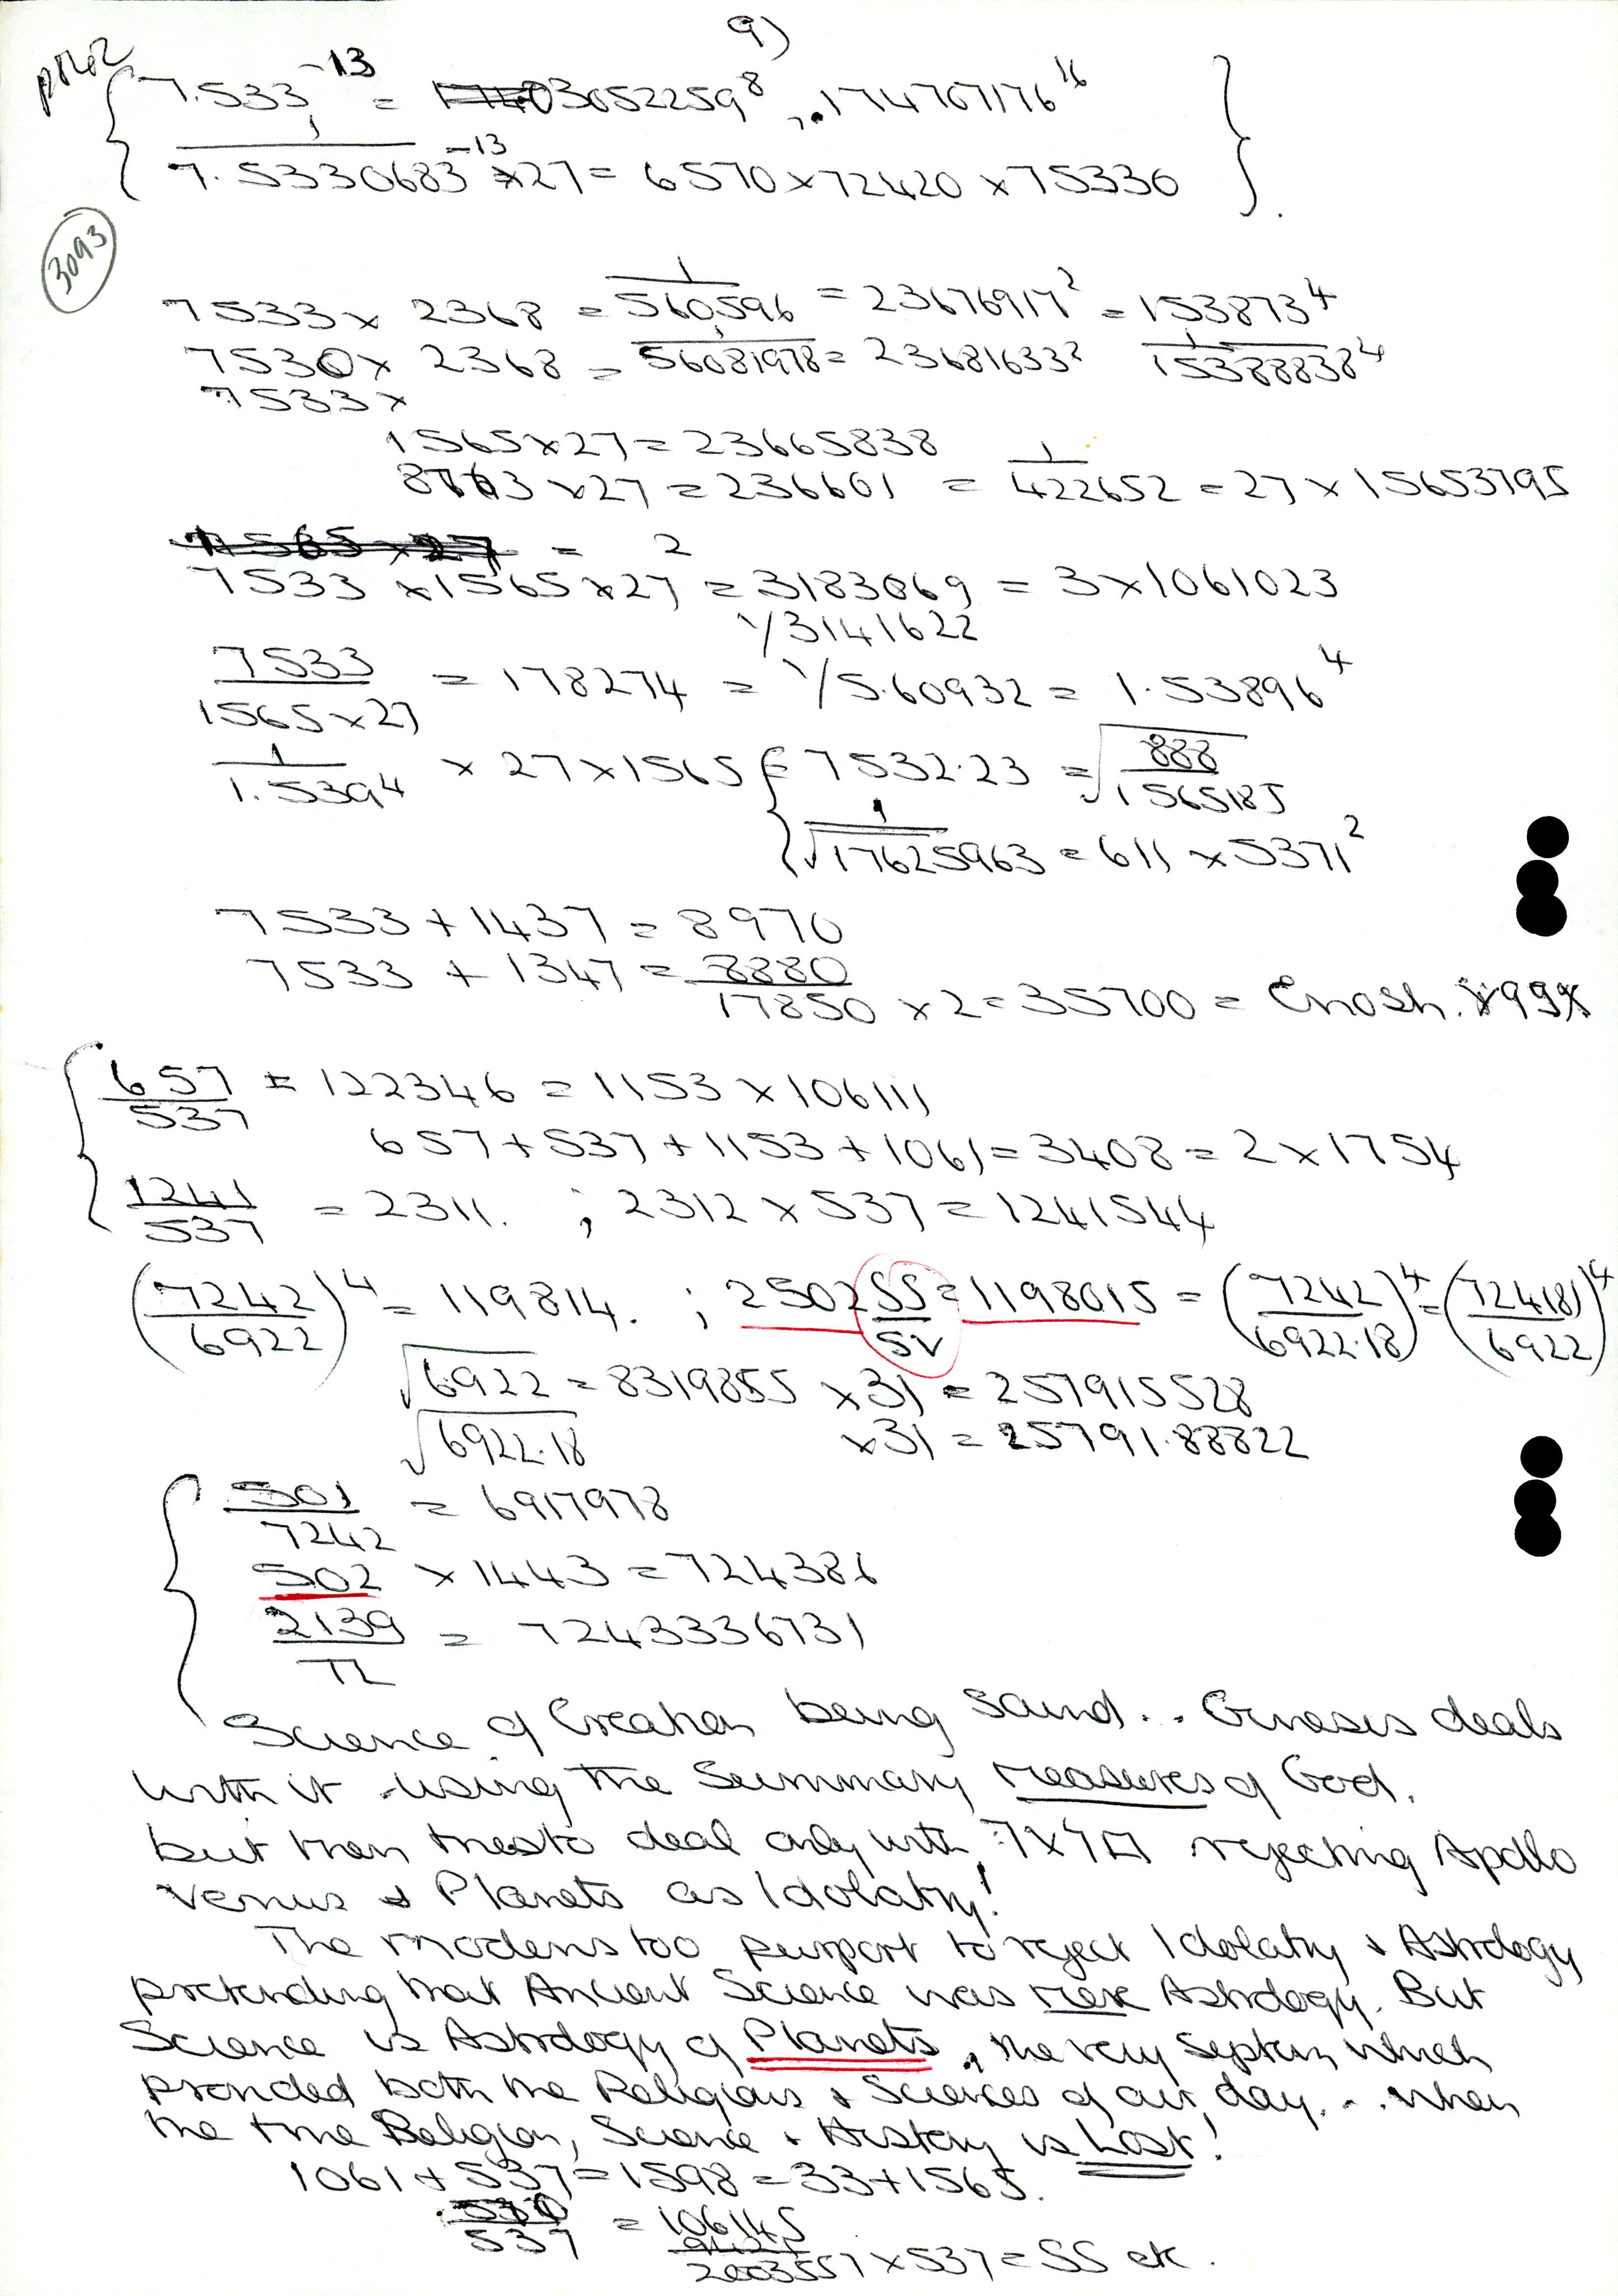 9)
7.533^-13 = 3052259^8, .174767176^16
1/7.5330683^-13 × 27 = 6570 × 72420 × 75330
3093
7533 × 2368 = 1/560596 = 23676917^2 = 153873^4
7530 × 2368 = 1/56081978 = 23681633^2 1/15388838^4
7533 ×
1565 × 27 = 23665838
8763 × 27 = 236601 = 1/422652 = 27 × 15653795
= 2
7533 × 1565 × 27 = 3183069 = 3 × 1061023
1/3141622
7533/1565 × 27 = 178274 = 1/5.60932 = 1.53896^4
1/1.5394 × 27 × 1565 { = 7532.23 = √888/1565185
1/√17625963 = 611 × 5371^2
7533 + 1437 = 8970
7533 + 1347 = 8880
17850 × 2 = 35700 = Enosh.
657/537 = 122346 = 1153 × 106111
657 + 537 + 1153 + 1061 = 3408 = 2 × 1754
1241/537 = 2311. ; 2312 × 537 = 1241544
(7242/6922)^4 = 119814. ; 2502 SS/SV = 1198015 = (7242/6922.18)^4 = (7241.81/6922)^4
√6922 = 8319855 × 31 = 257915528
√6922.18 × 31 = 25791.88822
501/7242 = 6917978
502 × 1443 = 724386
2139/TL = 7243336731
Science of Creation being Sound.. Genesis deals
with it using the Summary measures of God.
but then tries to deal only with 7 × 7 rejecting Apollo
Venus & Planets as Idolatry!
The moderns too purport to reject Idolatry & Astrology
pretending that Ancient Science was mere Astrology. But
Science is Astrology of Planets, the very system which
provided both the Religions & Sciences of our day... when
the true Religion, Science & History is Lost!
1061 + 537 = 1598 = 33 + 1565.
537 = 106145
2003557 × 537 = SS etc.